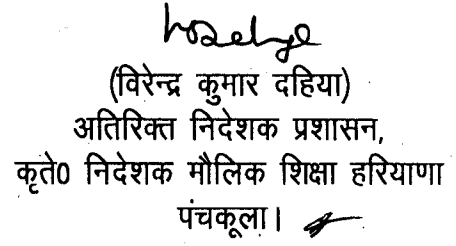 (विरेन्द्र कुमार दहिया)
अतिरिक्त निदेशक प्रशासन,
कृते0 निदेशक मौलिक शिक्षा हरियाणा
पंचकूला।